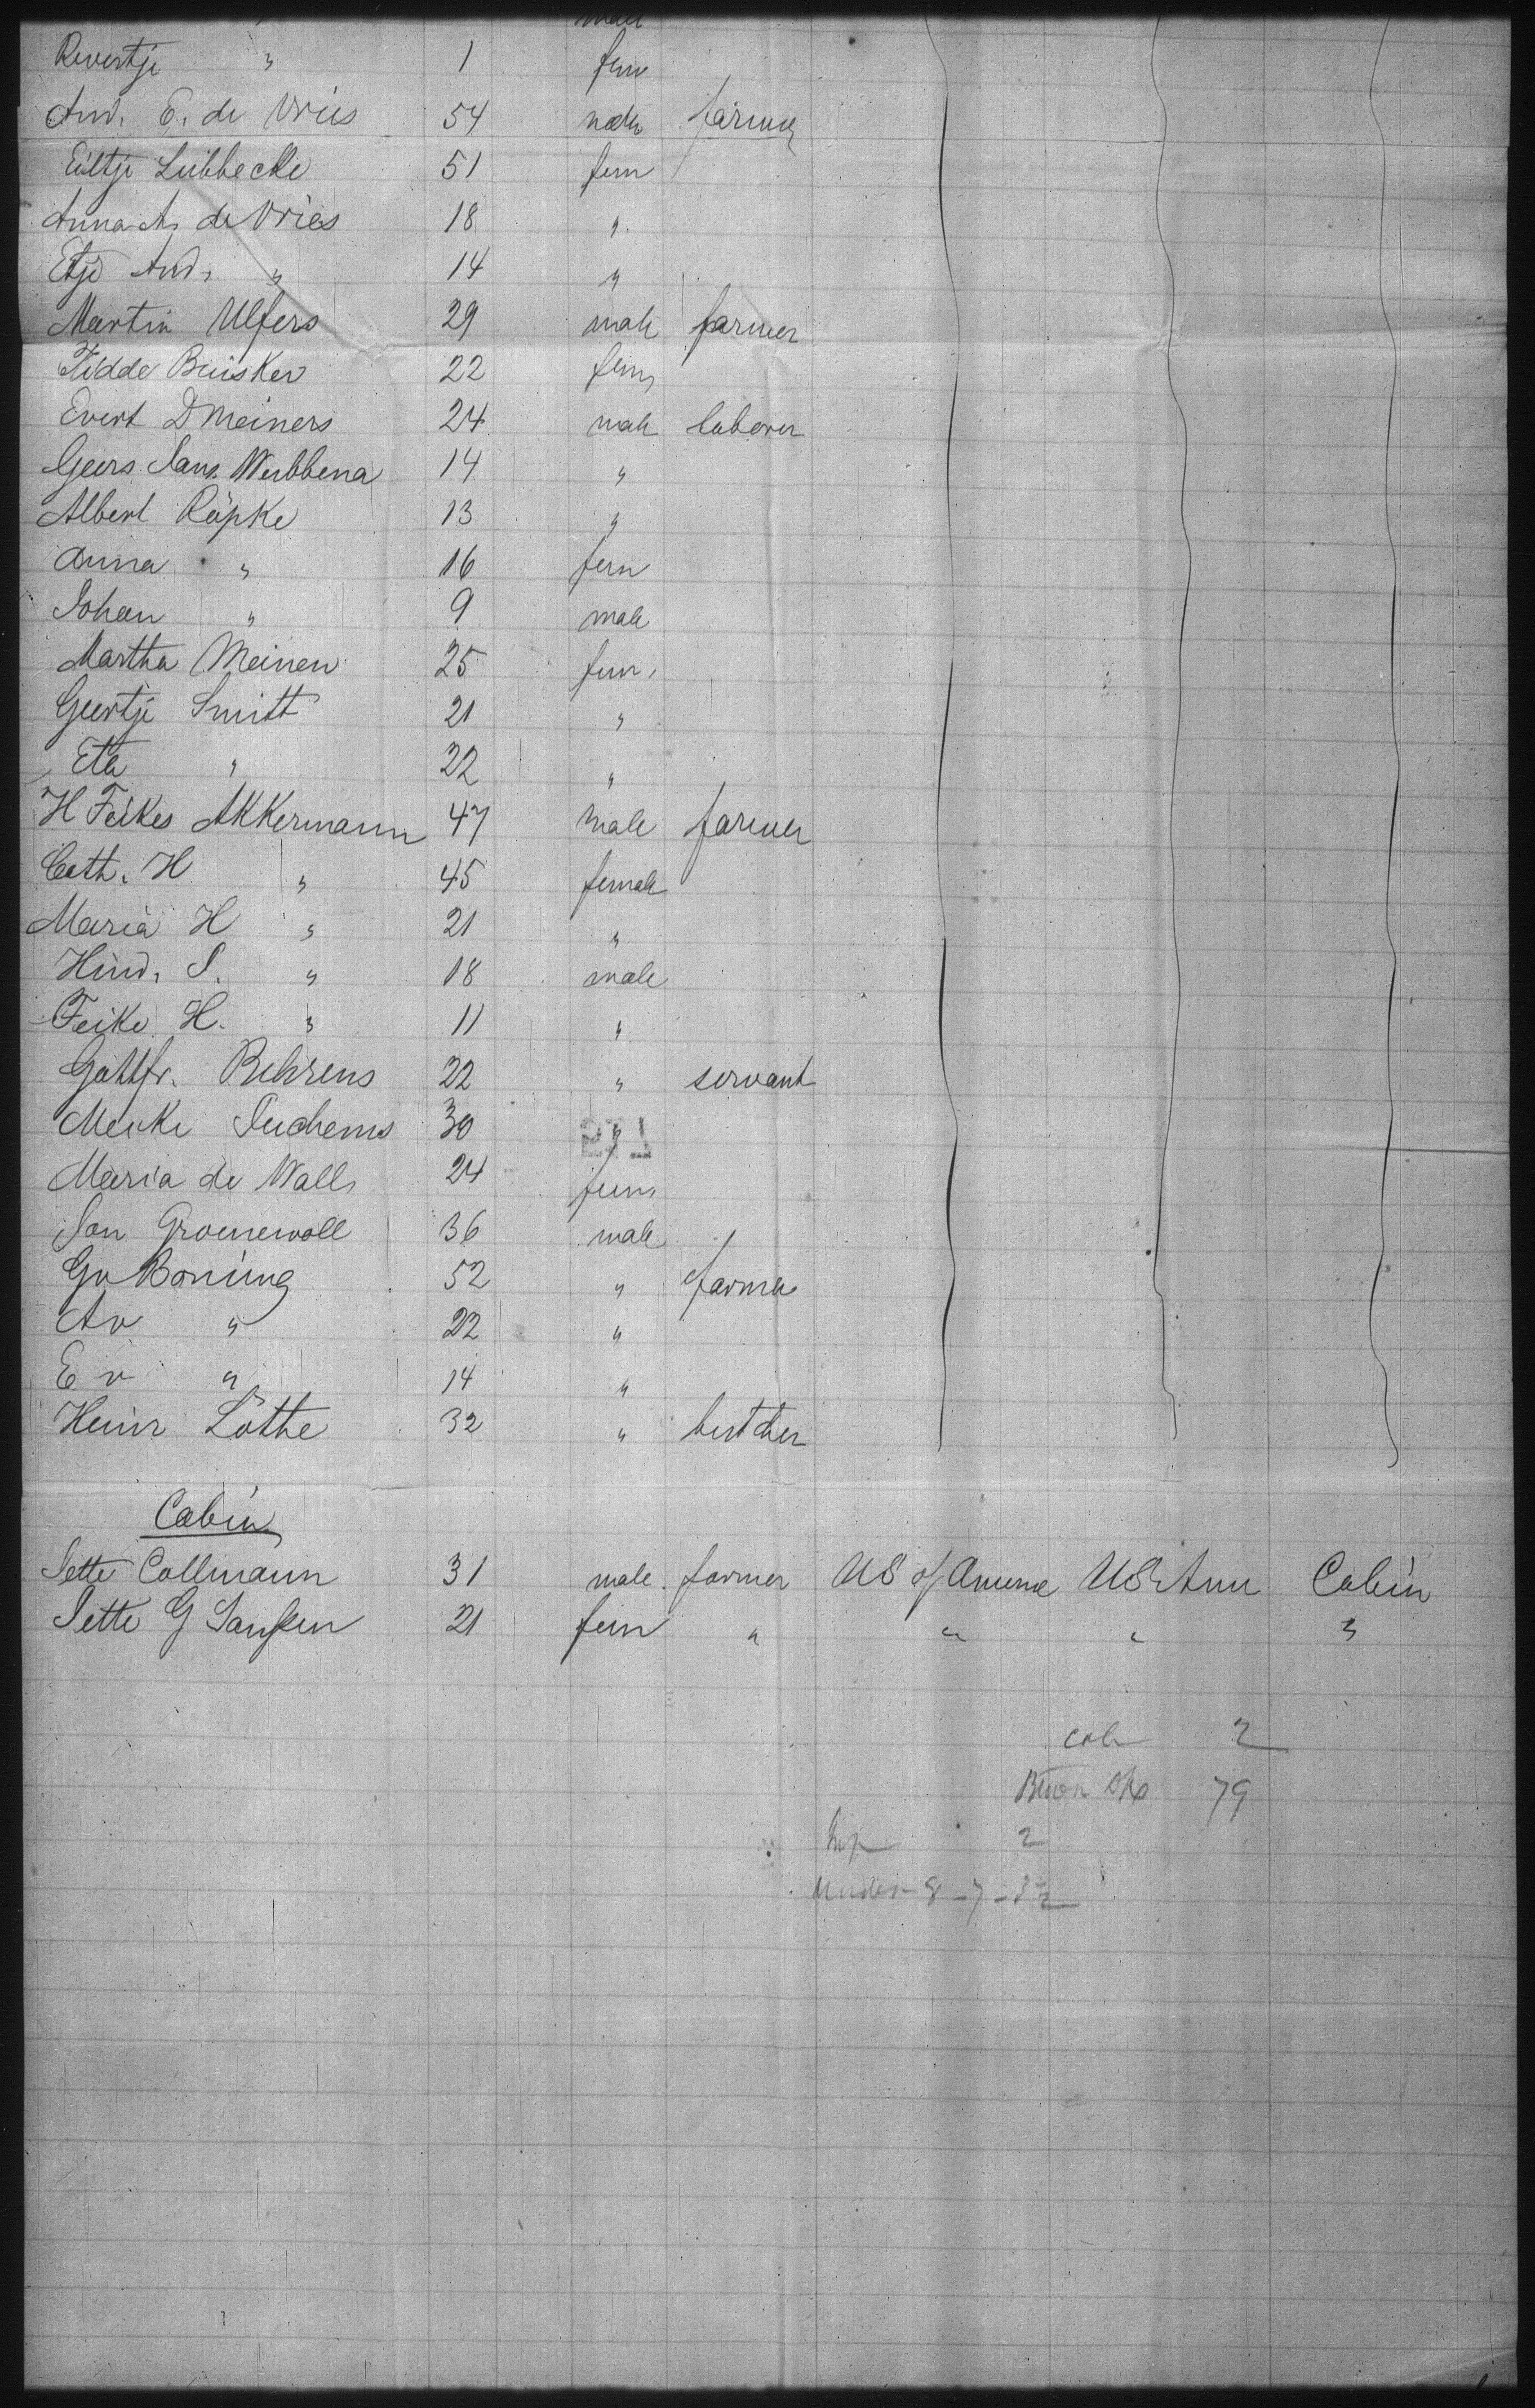 male
Revertje " 1 fem
And. E. de Vries 54 male farmer
Eiltje Lübbecke 51 fem
Anna A. de Vries 18 "
Etje And. " 14 "
Martin Ulfers 29 male farmer
Fidde Buisker 22 fem
Evert D Meiners 24 male laborer
Geers Jans. Wubbena 14 "
Albert Röpke 13 "
Anna " 16 fem
Johan " 9 male
Martha Meinen 25 fem.
Geertje Smitt 21 "
Eta " 22 "
H Feikes Akkermann 47 male farmer
Cath. H " 45 female
Maria H " 21 "
Hind. S. " 18 male
Feike H. " 11 "
Gottfr. Behrens 22 " servant
Meike 30 "
Maria de Wall 24 fem
Jan Groenewold 36 male
Gv Boning 52 " farmer
Av " 22 "
Ev " 14 "
Heinr Löthe 32 " butcher
Cabin
Jette Collmann 31 male farmer US of America US Am Cabin
Jette G Janssen 21 fem " " " "
cab 2
79
Inf 2
Under 8 - 7 - 3½